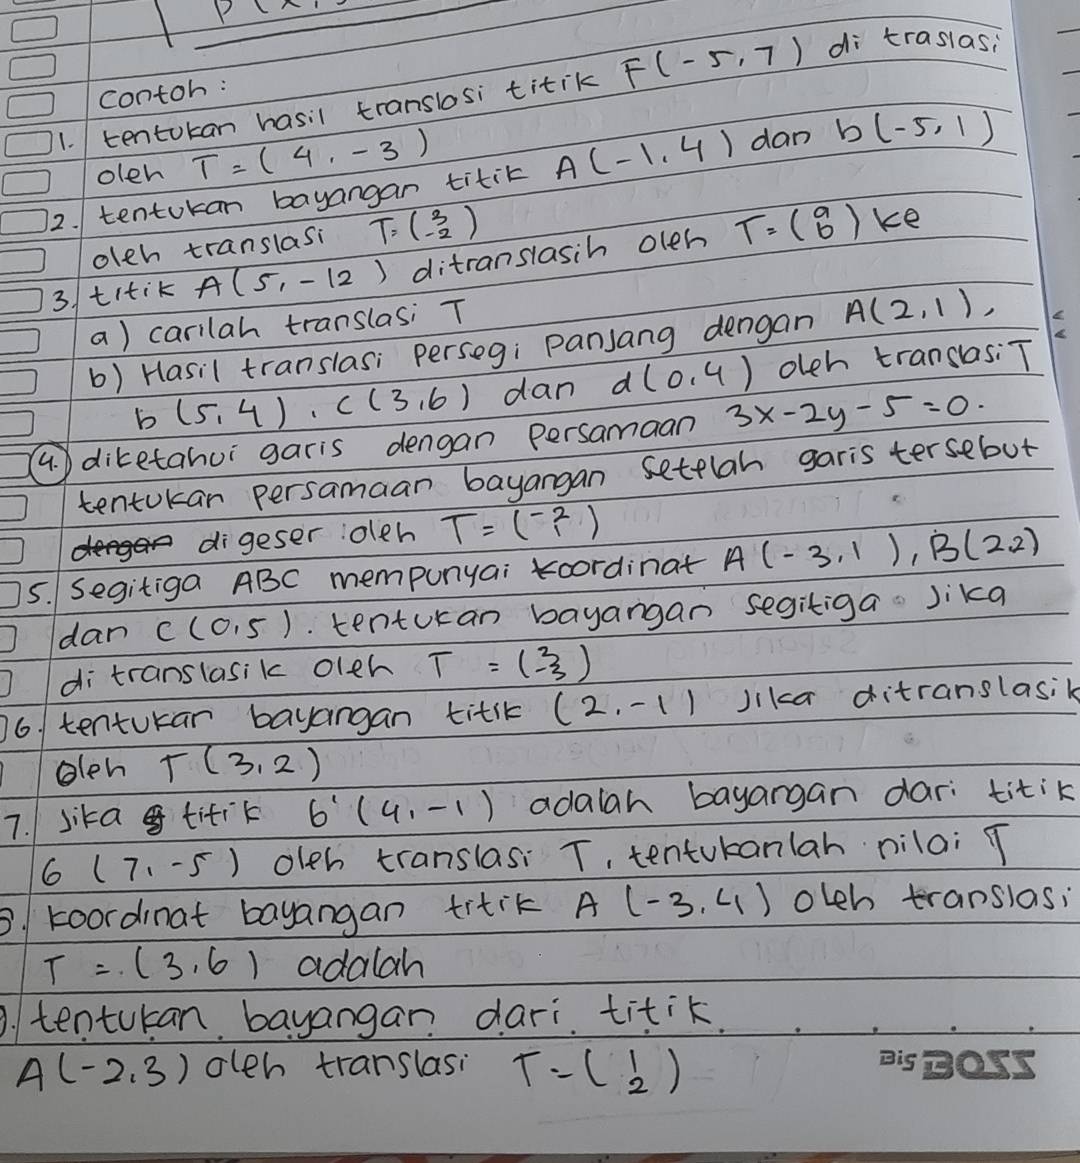 contoh :
1. tentukan hasil translasi titik F(-5,7) di traslasi
oleh T = (4, -3)
2. tentukan bayangan titik A(-1,4) dan b(-5,1)
oleh translasi T = (3 -2)
3. titik A(5, -12) ditranslasih oleh T = (a b) ke
a) carilah translasi T
b) Hasil translasi persegi panjang dengan A(2,1),
b(5,4), c(3,6) dan d(0,4) oleh translasi T
4. diketahui garis dengan persamaan 3x-2y-5=0.
tentukan persamaan bayangan setelah garis tersebut
dengan digeser oleh T =
5. segitiga ABC mempunyai koordinat A(-3,1), B(2,2)
dan C(0,5). tentukan bayangan segitiga jika
di translasik oleh T =
6. tentukan bayangan titik (2,-1) jika ditranslasik
oleh T(3,2)
7. jika titik 6'(4,-1) adalah bayangan dari titik
6 (7,-5) oleh translasi T, tentukanlah nilai T
8. koordinat bayangan titik A (-3,4) oleh translasi
T = (3,6) adalah
9. tentukan bayangan dari titik
A(-2,3) oleh translasi T = (1 2)
Big BOSS